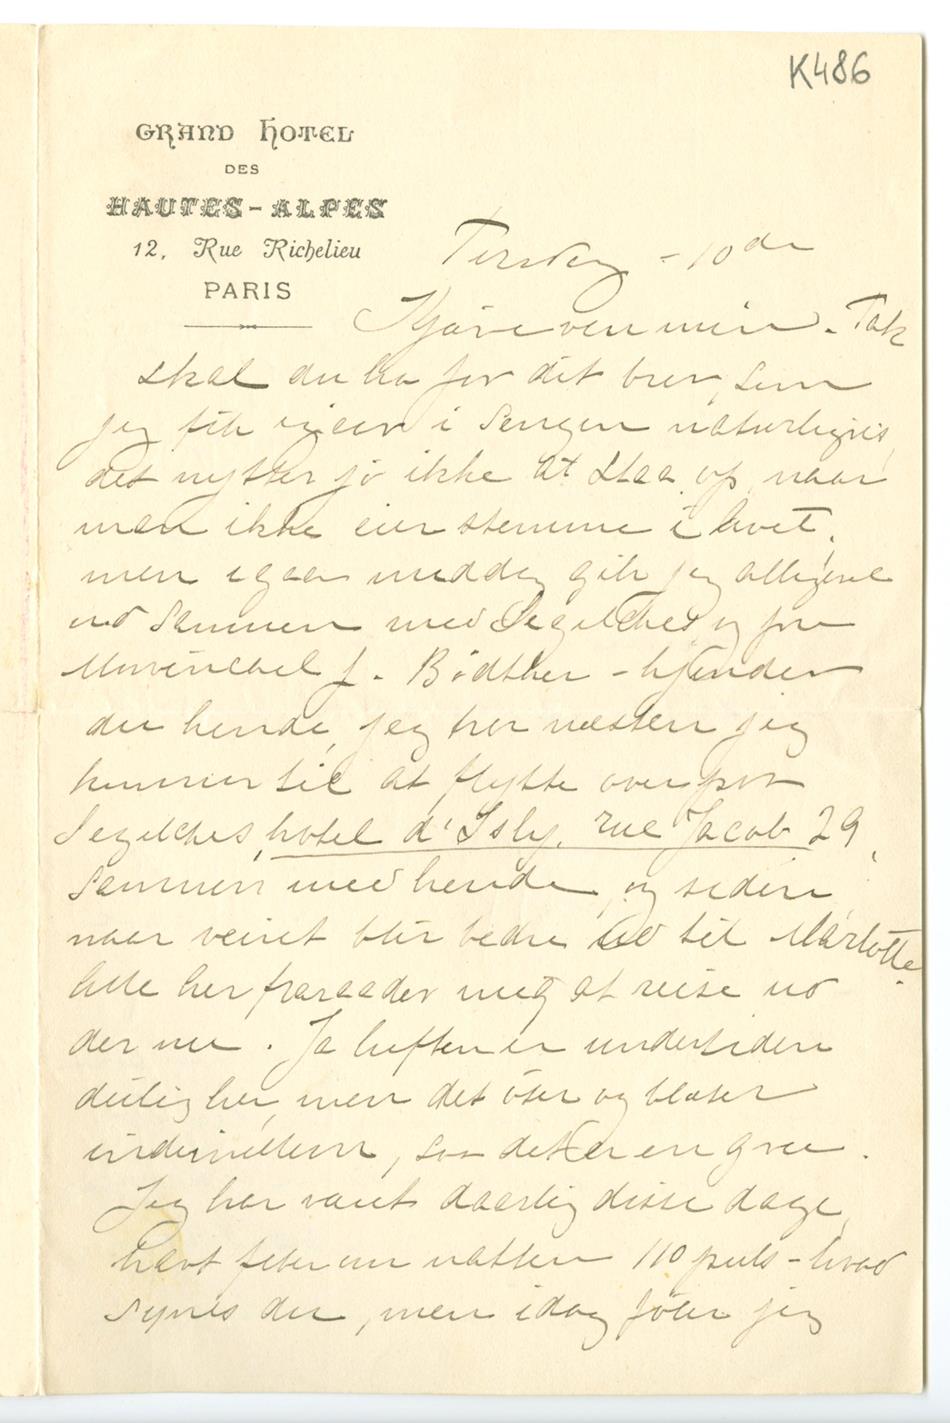 K486
GRAND HOTEL
DES
HAUTES-ALPES
12, Rue Richelieu
PARIS
Tirsdag - 10de
Kjære ven min. Tak
skal du ha for dit brev, som
jeg fik igaar i sengen naturligvis,
det nytter jo ikke at staa op, naar
man ikke eier stemme i livet,
men igaar middag gik jeg alligevel
ud sammen med Segelckes og frø
f. Bödtker - kjender
du hende, jeg tror næsten jeg
kommer til at flytte over paa
Segelckes hotel d'Isly, rue Jacob 29,
sammen med hende, og siden
naar veiret blir bedre ud til Marlotte.
Alle her fraraader mig at reise ud
der nu. Ja luften er undertiden
deilig her, men det öser og blæser
indimellem, saa det er en gru.
Jeg har været daarlig disse dage,
havt feber om natten 110 puls - hvad
synes du, men idag föler jeg